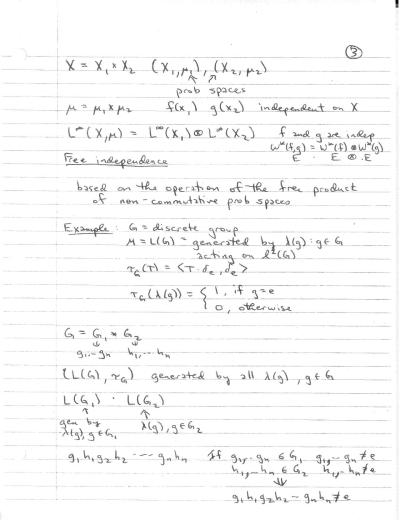 ③
X = X₁ × X₂ (X₁, μ₁), (X₂, μ₂)
prob spaces
μ = μ₁ × μ₂ f(x₁) g(x₂) independent on X
L^∞(X, μ) = L^∞(X₁) ⊗ L^∞(X₂) f and g are indep
W*(f,g) = W*(f) ⊗ W*(g)
E · E ⊗ · E
Free independence
based on the operation of the free product
of non-commutative prob spaces
Example: G = discrete group
M = L(G) = generated by λ(g) : g∈G
acting on l²(G)
τ_G(T) = <T·δ_e, δ_e>
τ_G(λ(g)) = { 1, if g=e
0, otherwise
G = G₁ * G₂
g₁…gₙ h₁,…hₙ
(L(G), τ_G) generated by all λ(g), g∈G
L(G₁) · L(G₂)
gen by λ(g), g∈G₂
λ(g), g∈G₁
g₁h₁g₂h₂ ---- gₙhₙ If g₁,…gₙ ∈ G₁ g₁,…gₙ ≠ e
h₁,…hₙ ∈ G₂ h₁,…hₙ ≠ e
⇓
g₁h₁g₂h₂…gₙhₙ ≠ e